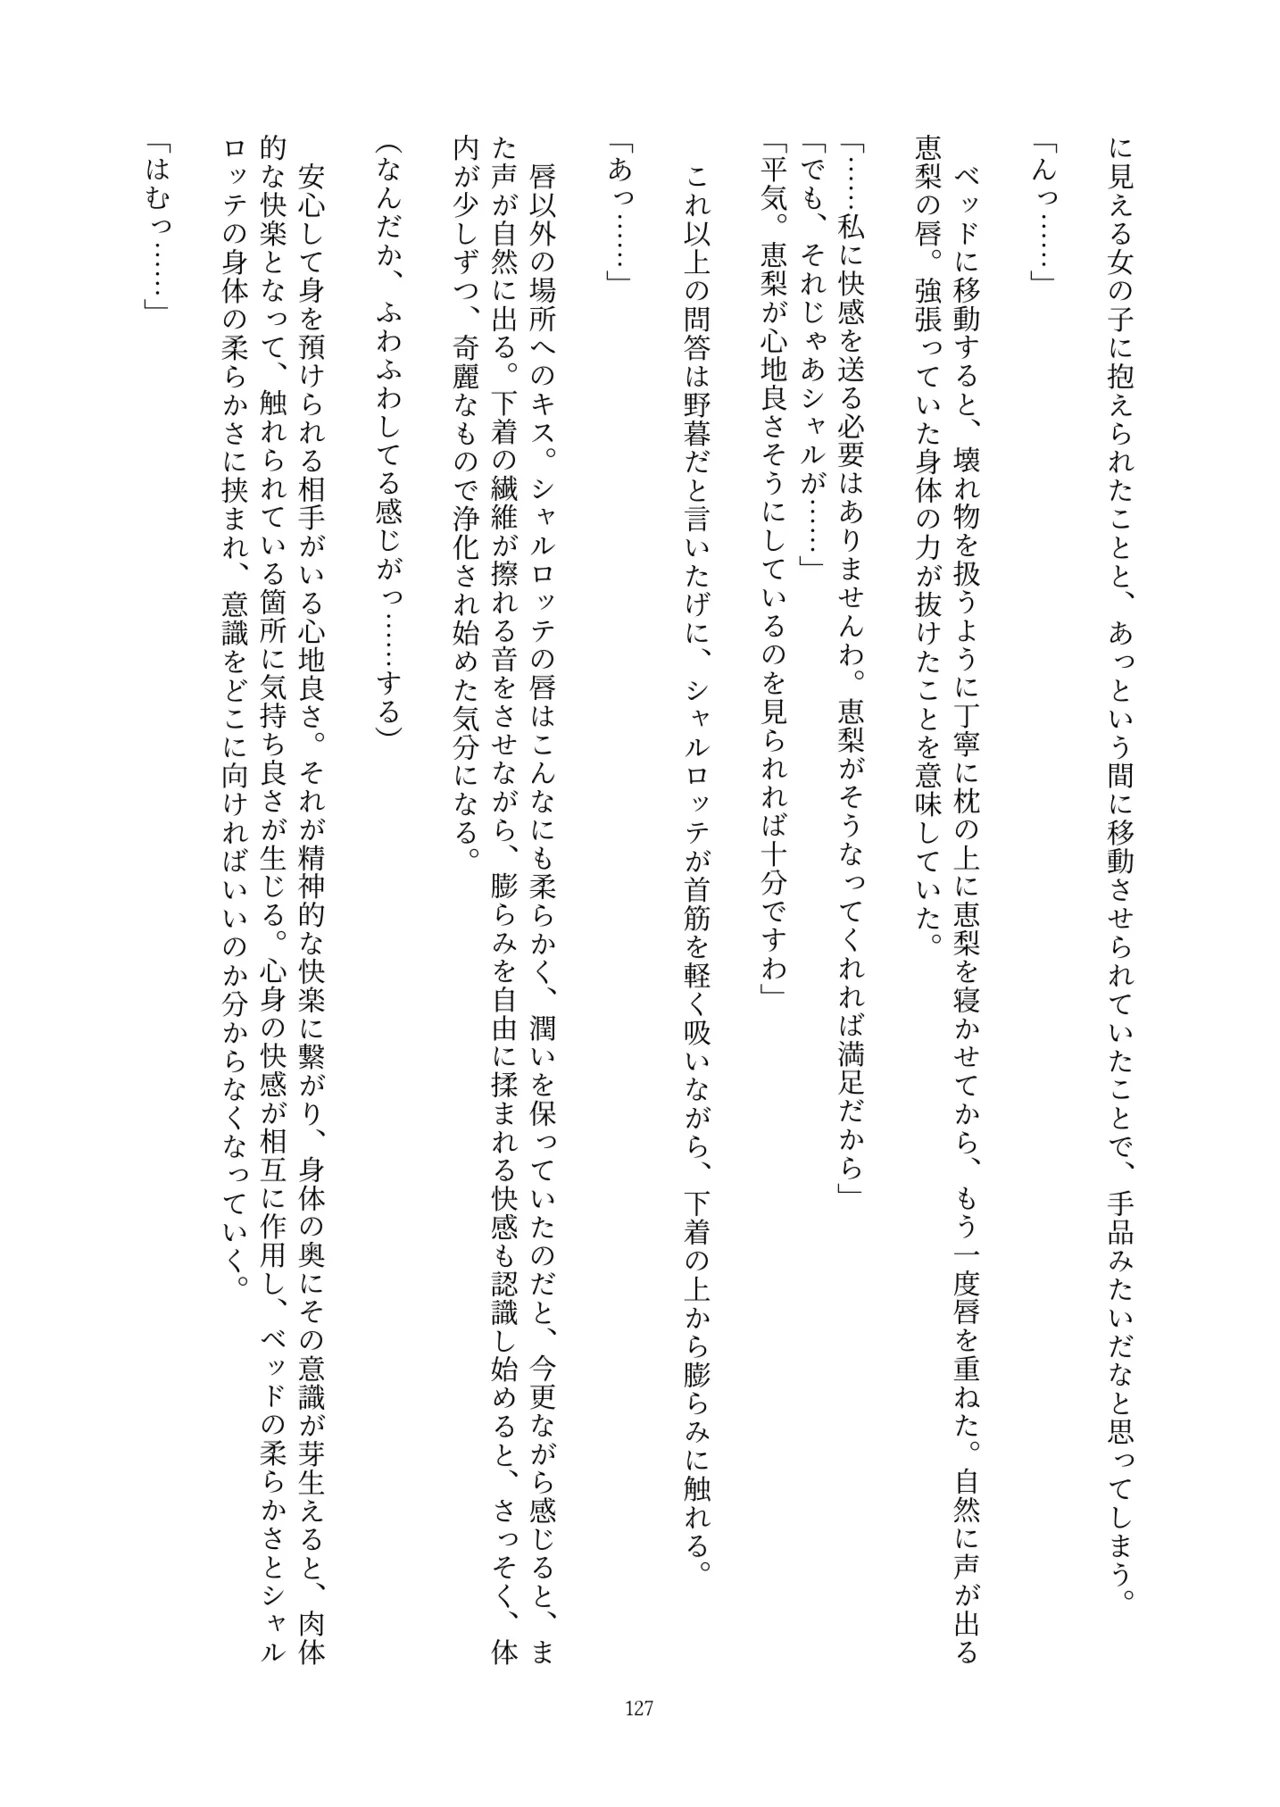 に見える女の子に抱えられたことと、あっという間に移動させられていたことで、手品みたいだなと思ってしまう。
「んっ……」
ベッドに移動すると、壊れ物を扱うように丁寧に枕の上に恵梨を寝かせてから、もう一度唇を重ねた。自然に声が出る
恵梨の唇。強張っていた身体の力が抜けたことを意味していた。
「……私に快感を送る必要はありませんわ。恵梨がそうなってくれれば満足だから」
「でも、それじゃあシャルが……」
「平気。恵梨が心地良さそうにしているのを見られれば十分ですわ」
これ以上の問答は野暮だと言いたげに、シャルロッテが首筋を軽く吸いながら、下着の上から膨らみに触れる。
「あっ……」
唇以外の場所へのキス。シャルロッテの唇はこんなにも柔らかく、潤いを保っていたのだと、今更ながら感じると、ま
た声が自然に出る。下着の繊維が擦れる音をさせながら、膨らみを自由に揉まれる快感も認識し始めると、さっそく、体
内が少しずつ、奇麗なもので浄化され始めた気分になる。
（なんだか、ふわふわしてる感じがっ……する）
安心して身を預けられる相手がいる心地良さ。それが精神的な快楽に繋がり、身体の奥にその意識が芽生えると、肉体
的な快楽となって、触れられている箇所に気持ち良さが生じる。心身の快感が相互に作用し、ベッドの柔らかさとシャル
ロッテの身体の柔らかさに挟まれ、意識をどこに向ければいいのか分からなくなっていく。
「はむっ……」
127